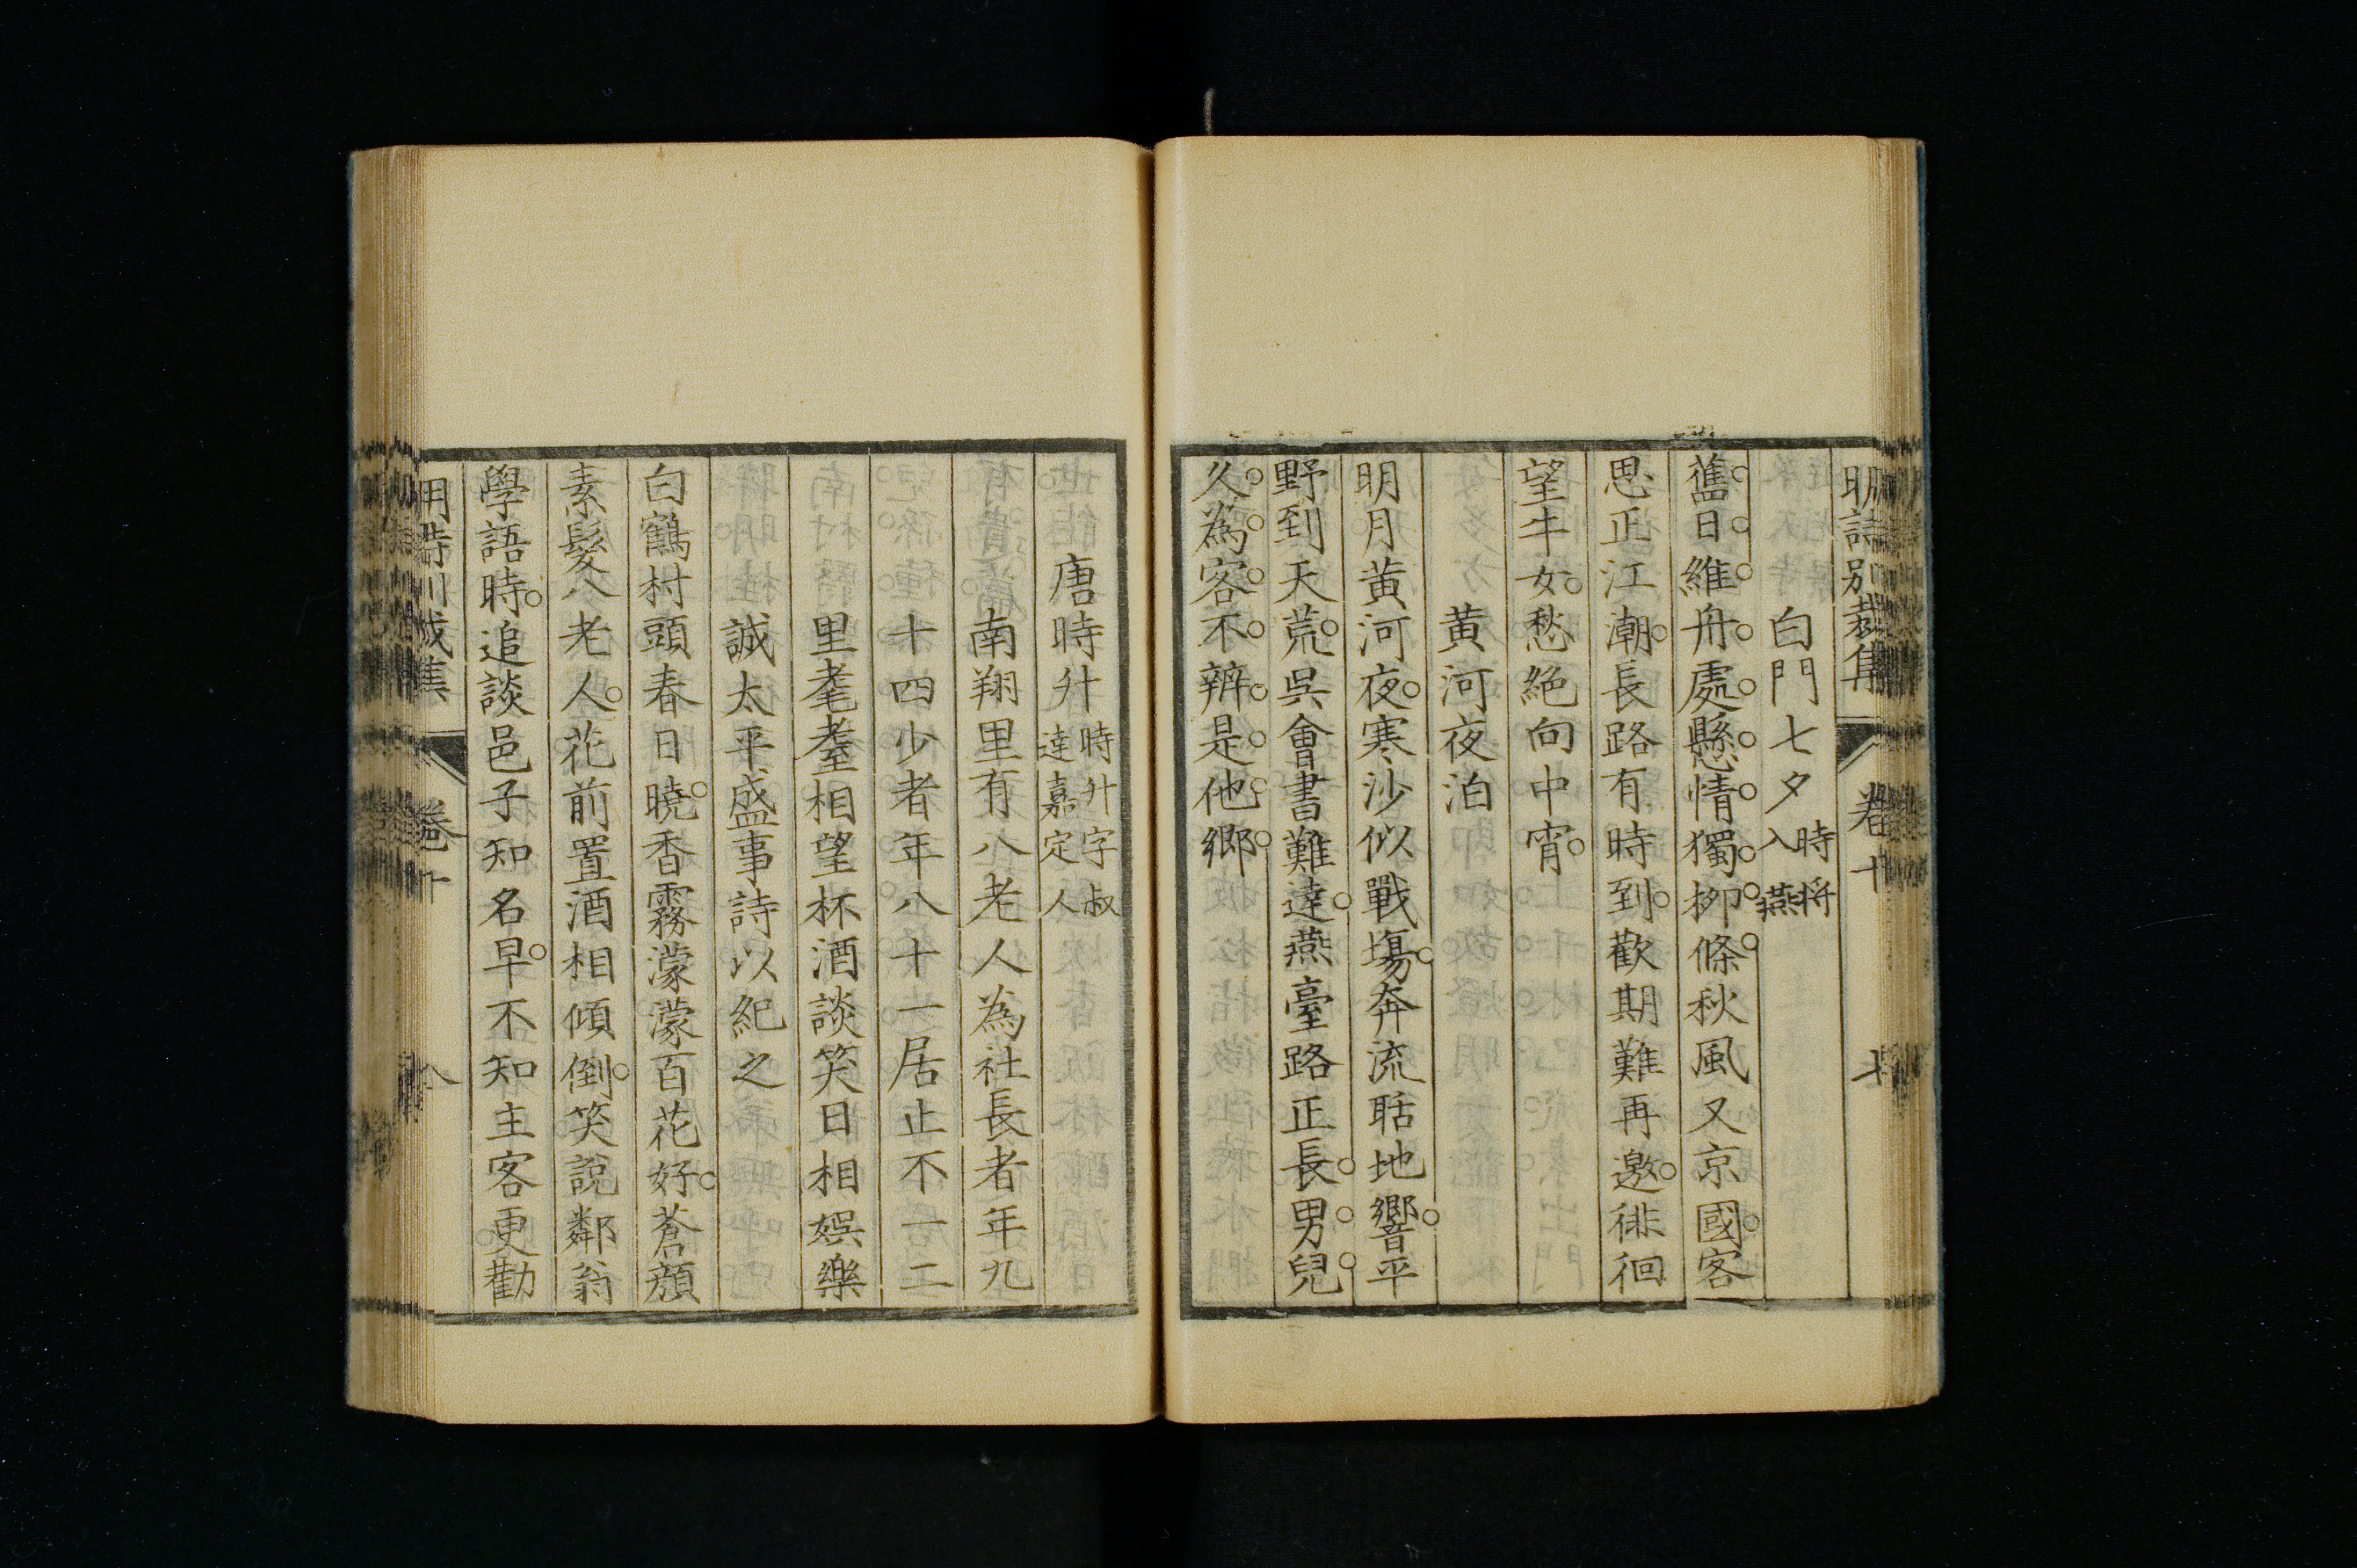 明詩別裁集 卷十 七
白門七夕 時將入燕
舊日維舟處懸情獨柳條秋風又京國客
思正江潮長路有時到歡期難再邀徘徊
望牛女愁絕向中宵
黃河夜泊
明月黃河夜寒沙似戰塲奔流聒地響平
野到天荒吳會書難達燕臺路正長男兒
久為客不辨是他鄉
唐時升 時升字叔達嘉定人
南翔里有八老人為社長者年九
十四少者年八十一居止不一二
里耄耋相望杯酒談笑日相娛樂
誠太平盛事詩以紀之
白鶴村頭春日曉香霧濛濛百花好蒼顏
素髮八老人花前置酒相傾倒笑說鄰翁
學語時追談邑子知名早不知主客更勸
明詩別裁集 卷十 八